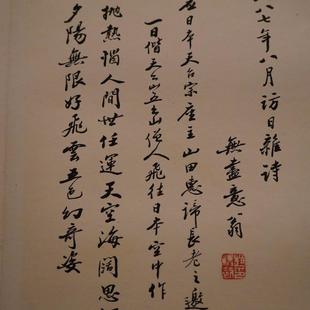 八七年八月訪日雜詩
無盡意翁
日本天台宗座主山田惠諦長老之邀
一日偕天台僧人飛往日本空中作
拋熱惱人間世任運天空海闊思
夕陽無限好飛雲五色幻奇姿